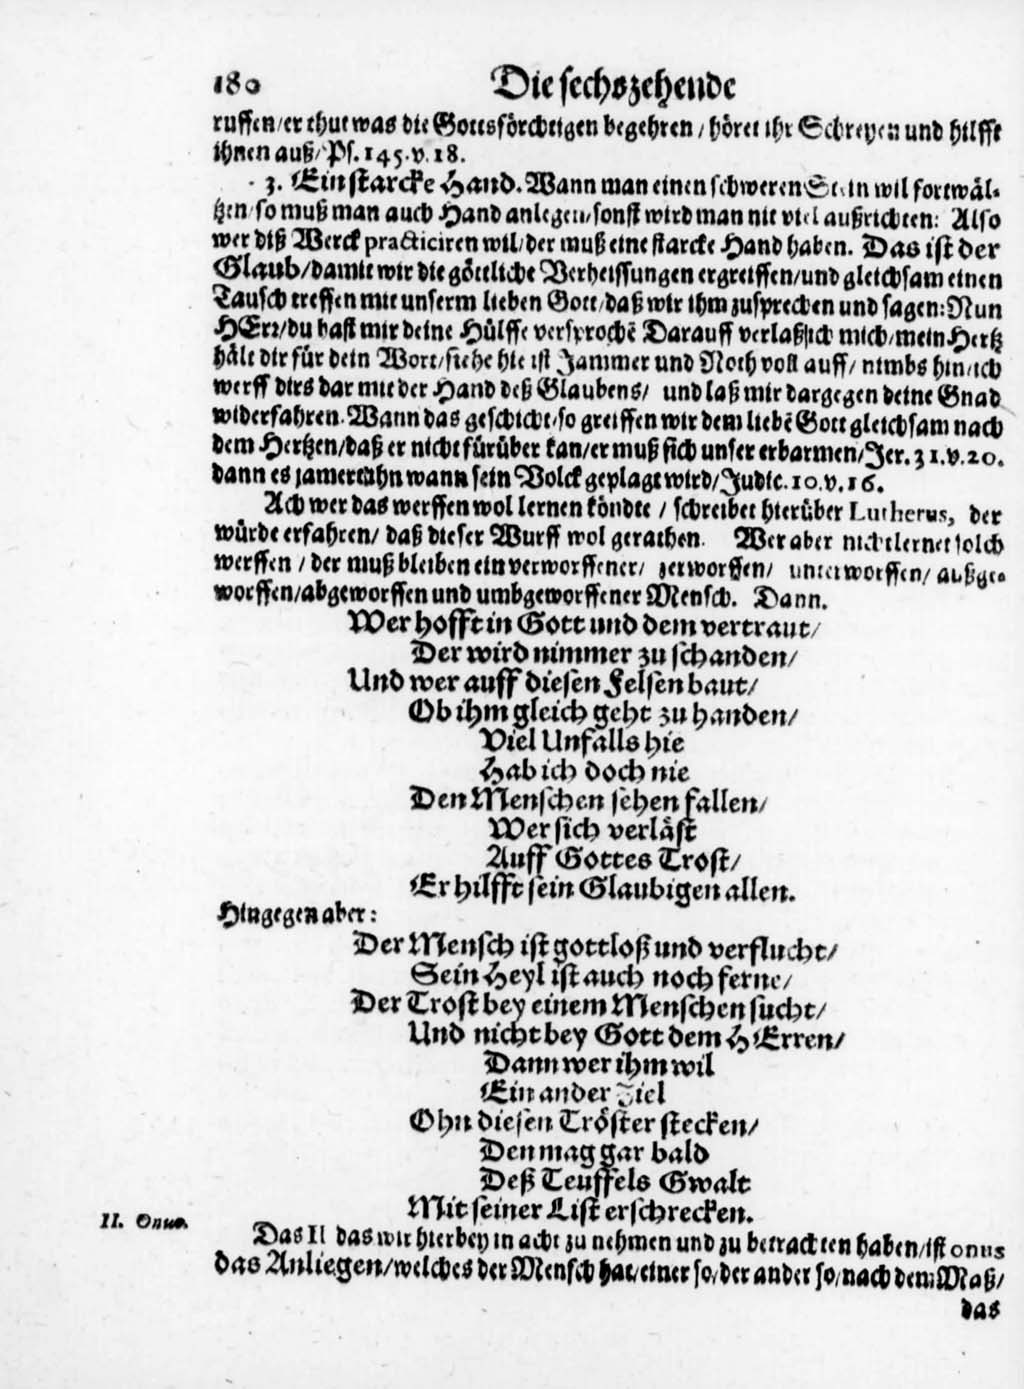 180 Die sechszehende
ruffen/er thut was die Gottsförchtigen begehren/höret ihr Schreyen und hilfft
ihnen auß/Ps. 145. v. 18.
3. Ein starcke Hand. Wann man einen schweren Stein wil fortwäl-
tzen/so muß man auch Hand anlegen/sonst wird man nit viel außrichten: Also
wer diß Werck practiciren wil/der muß eine starcke Hand haben. Das ist der
Glaub/damit wir die göttliche Verheissungen ergreiffen/und gleichsam einen
Tausch treffen mit unserm lieben Gott/daß wir ihm zusprechen und sagen: Nun
HErr/du hast mir deine Hülffe versprochē Darauff verlaß ich mich/mein Hertz
hält dir für dein Wort/siehe hie ist Jammer und Noth voll auff/nimbs hin/ich
werff dirs dar mit der Hand deß Glaubens/ und laß mir dargegen deine Gnad
widerfahren. Wann das geschicht/so greiffen wir dem liebē Gott gleichsam nach
dem Hertzen/daß er nicht fürüber kan/er muß sich unser erbarmen/Jer. 31. v. 20.
dann es jamert ihn wann sein Volck geplagt wird/Judic. 10. v. 16.
Ach wer das werffen wol lernen köndte / schreibet hierüber Lutherus, der
würde erfahren/ daß dieser Wurff wol gerathen. Wer aber nicht lernet solch
werffen / der muß bleiben ein verworffener/ zerworffen/ unterworffen/ außge-
worffen/abgeworffen und umbgeworffener Mensch. Dann.
Wer hofft in Gott und dem vertraut/
Der wird nimmer zu schanden/
Und wer auff diesen Felsen baut/
Ob ihm gleich geht zu handen/
Viel Unfalls hie
Hab ich doch nie
Den Menschen sehen fallen/
Wer sich verläst
Auff Gottes Trost/
Er hilfft sein Glaubigen allen.
Hingegen aber:
Der Mensch ist gottloß und verflucht/
Sein Heyl ist auch noch ferne/
Der Trost bey einem Menschen sucht/
Und nicht bey Gott dem HErren/
Dann wer ihm wil
Ein ander Ziel
Ohn diesen Tröster stecken/
Den mag gar bald
Deß Teuffels Gwalt
Mit seiner List erschrecken.
II. Onus.
Das II das wir hierbey in acht zu nehmen und zu betrachten haben/ist onus
das Anliegen/welches der Mensch hat/einer so/der ander so/nach dem Maß/
das